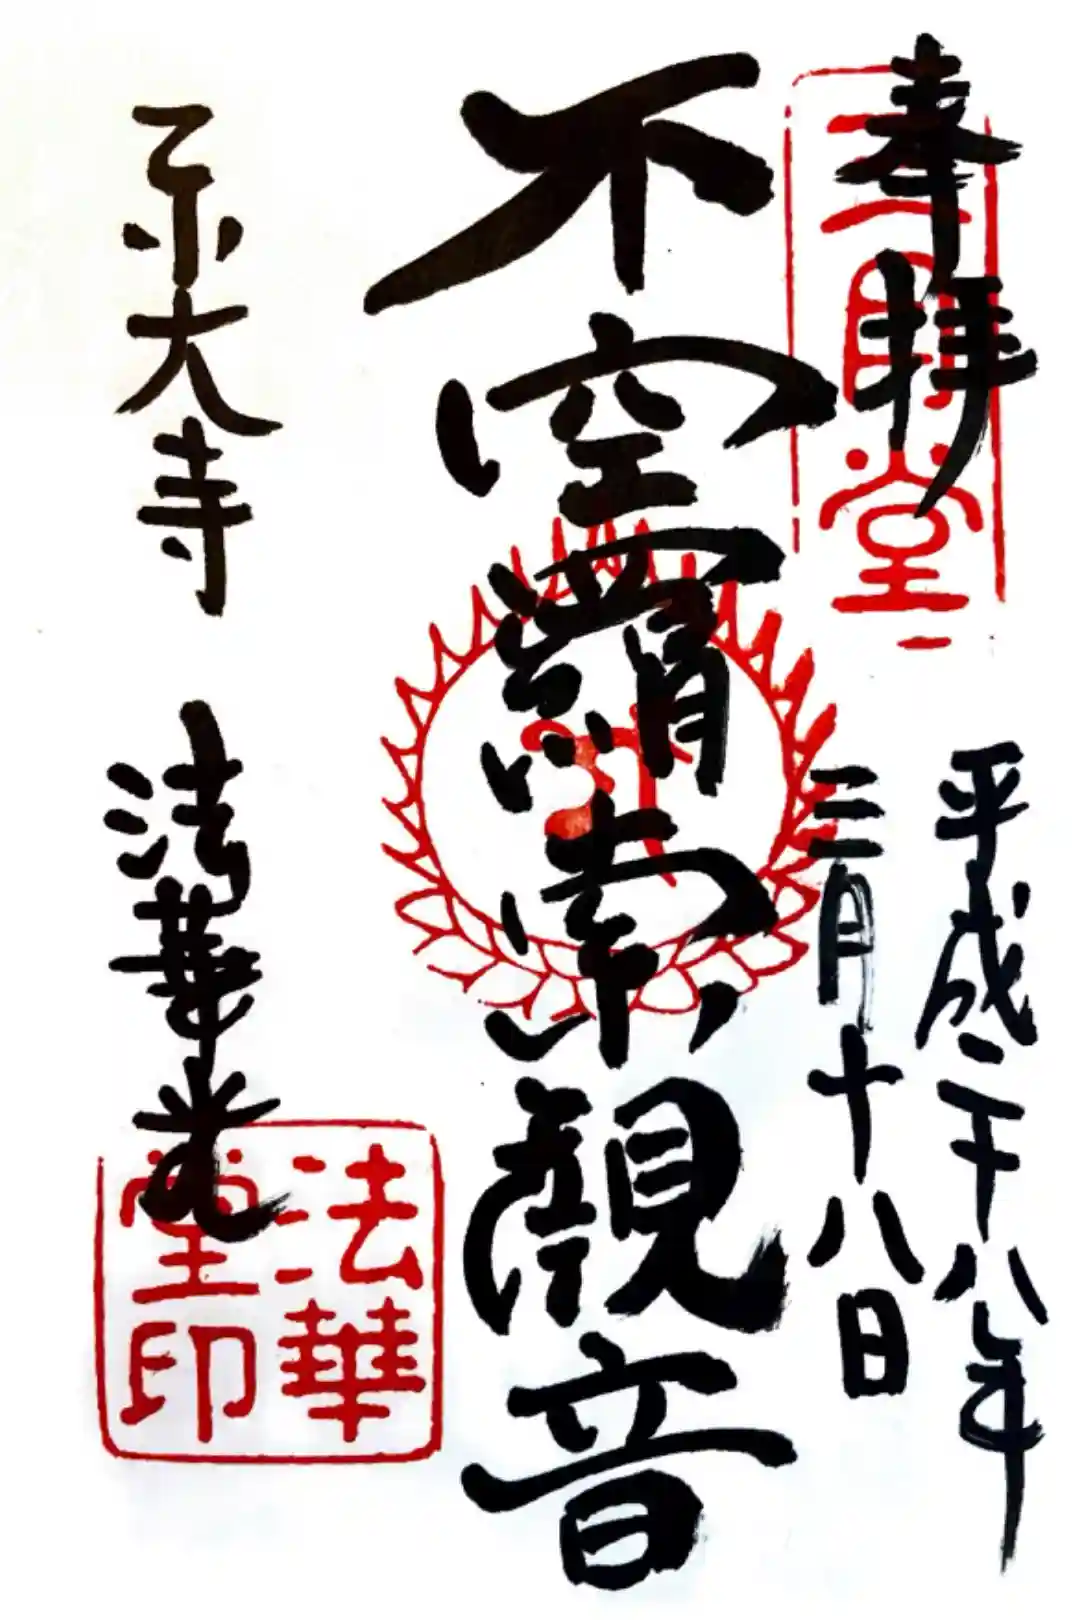 奉拝
三月堂
平成二十八年
三月十八日
不空羂索観音
東大寺
法華堂
法華
堂印